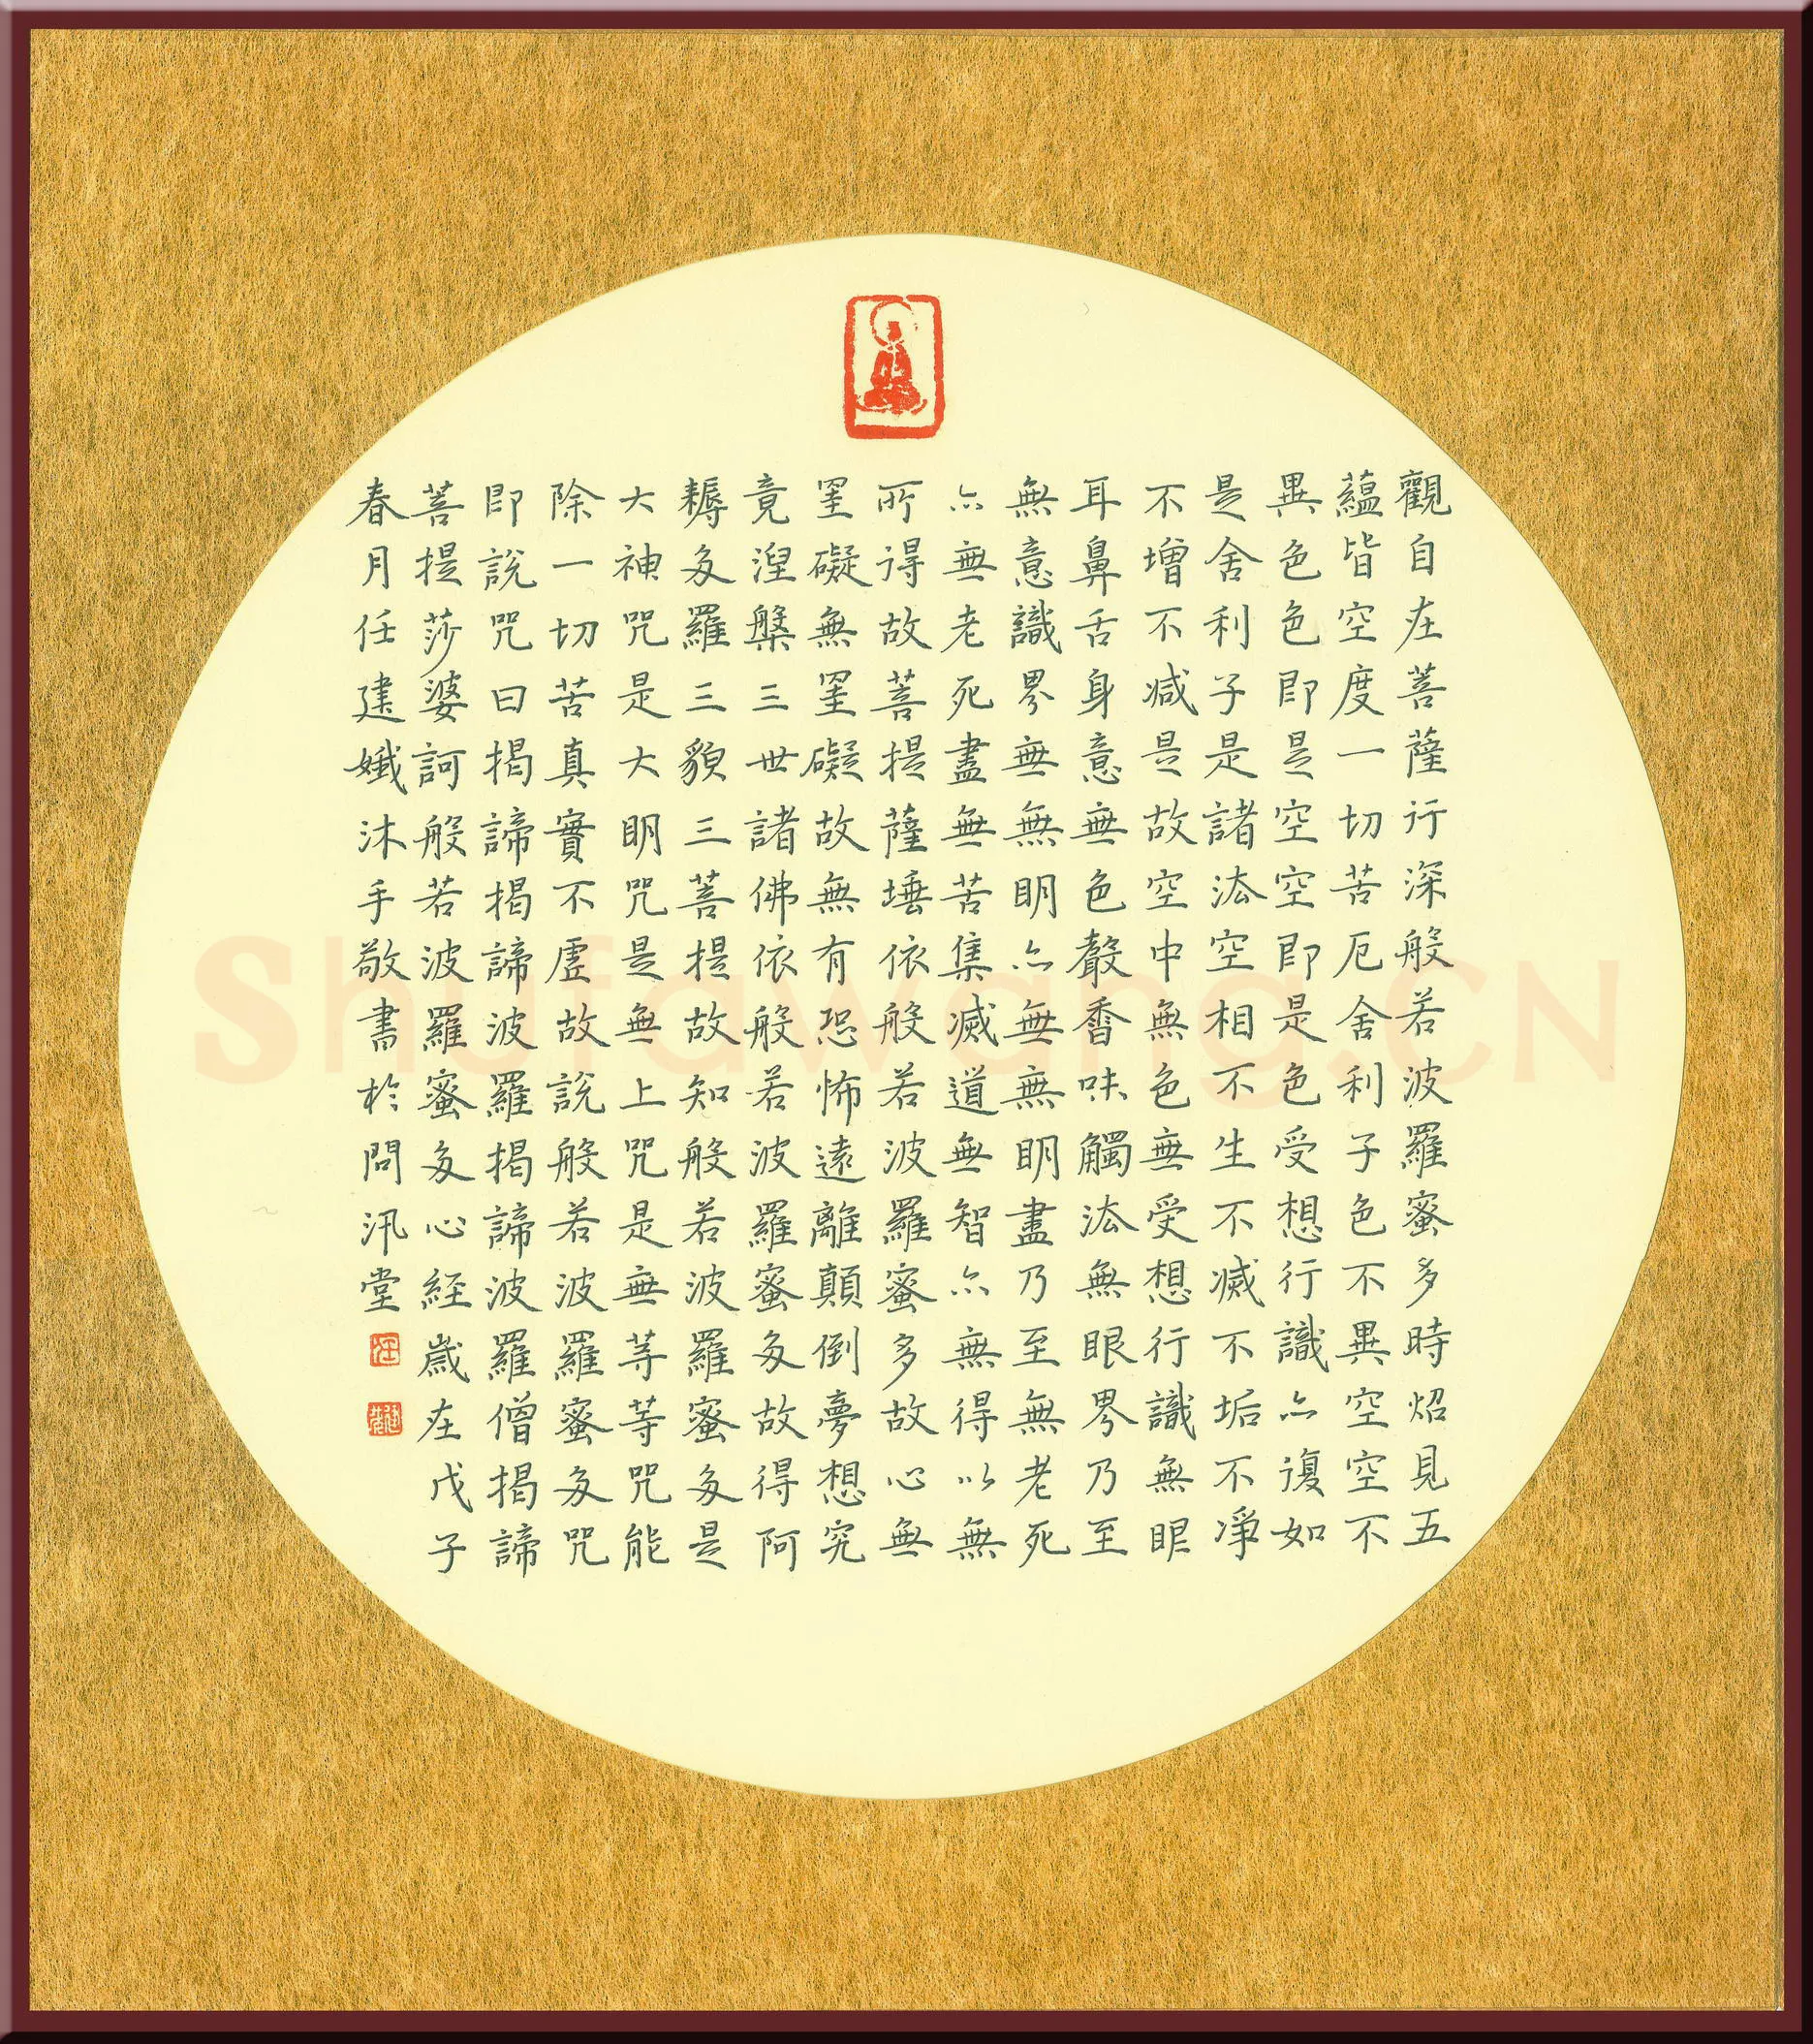 觀自在菩薩行深般若波羅蜜多時炤見五
蘊皆空度一切苦厄舍利子色不異空空不
異色色即是空空即是色受想行識亦復如
是舍利子是諸法空相不生不滅不垢不淨
不增不減是故空中無色無受想行識無眼
耳鼻舌身意無色聲香味觸法無眼界乃至
無意識界無無明亦無無明盡乃至無老死
亦無老死盡無苦集滅道無智亦無得以無
所得故菩提薩埵依般若波羅蜜多故心無
罣礙無罣礙故無有恐怖遠離顛倒夢想究
竟涅槃三世諸佛依般若波羅蜜多故得阿
耨多羅三藐三菩提故知般若波羅蜜多是
大神咒是大明咒是無上咒是無等等咒能
除一切苦真實不虛故說般若波羅蜜多咒
即說咒曰揭諦揭諦波羅揭諦波羅僧揭諦
菩提莎婆訶般若波羅蜜多心経歲在戊子
春月任建孅沐手敬書於問汛堂
Shufawang.CN